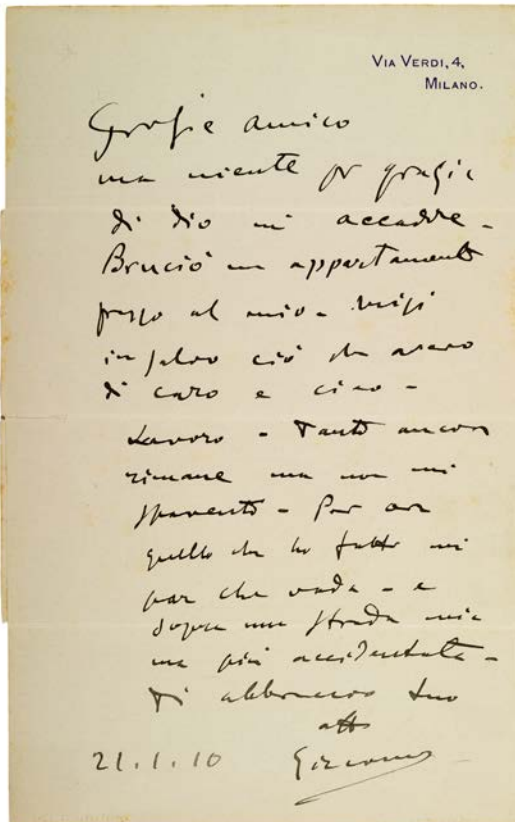 VIA VERDI, 4,
MILANO.
Grazie amico
ma niente per grazia
di dio mi accadde -
Bruciò un appartamento
presso al mio - misi
in salvo ciò che avevo
di caro e ciao -
Lavoro - Tanto ancora
rimane ma non mi
spavento - Per ora
quello che ho fatto mi
par che vada - e
dopo una strada mia
ma più accidentata -
Ti abbraccio tuo
aff
Giacomo
21.1.10